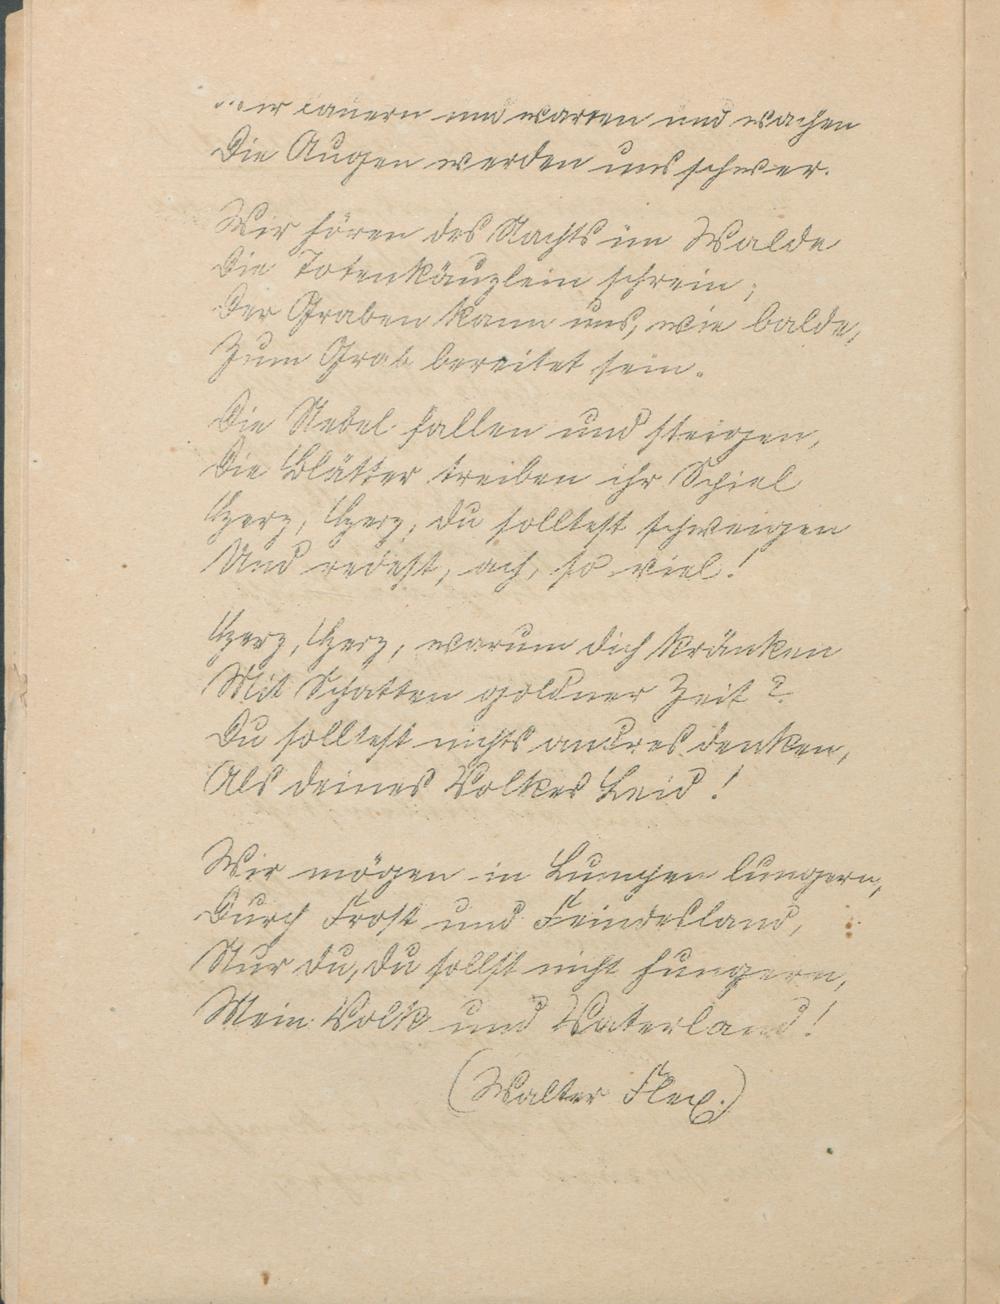 Wir lauern und warten und wachen
Die Augen werden uns schwer.
Wir hören des Nachts im Walde
Die Totenkäuzlein schrein;
Der Graben kann uns, wie balde,
Zum Grab bereitet sein.
Die Nebel fallen und steigen,
Die Blätter treiben ihr Spiel
Herz, Herz, du solltest schweigen
Und redest, ach, so viel!
Herz, Herz, warum dich kränken
Mit Schatten goldner Zeit?
Du solltest nichts andres denken,
Als deines Volkes Leid!
Wir mögen in Lumpen lungern,
Durch Frost und Feindesland,
Nur du, du sollst nicht hungern,
Mein Volk und Vaterland!
(Walter Flex.)